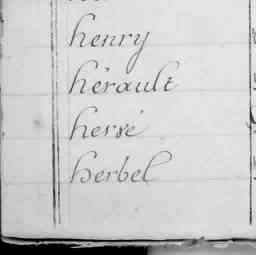 henry
hérault
hersé
herbel